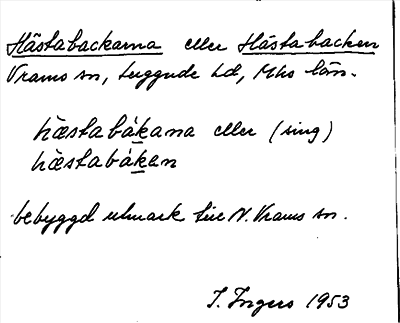 Hästabackarna eller Hästabacken
Vrams sn, Luggude hd, Mhs län.
hæstabákana eller (sing)
hæstabákan
bebyggd utmark till N. Vrams sn.
I. Ingers 1953